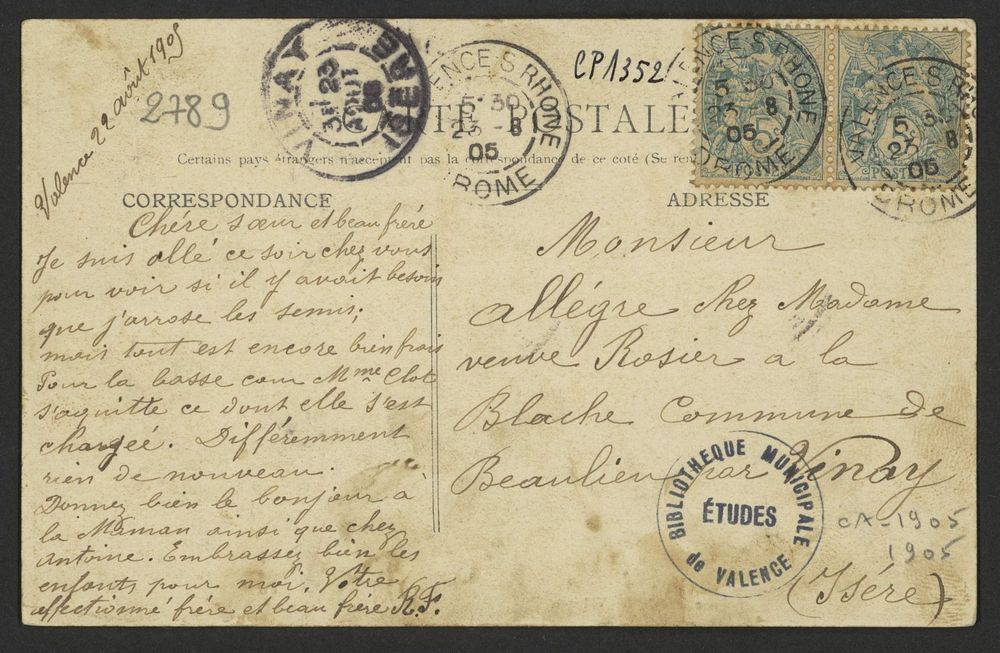 Valence 22 août 1905
2789
VINAY
23
AOUT
05
ISERE
VALENCE S RHONE
5 30
23 - 8
05
DROME
CP1352
CARTE POSTALE
VALENCE S RHONE
5 30
23 8
05
DROME
5
VALENCE S RHONE
5 30
8
05
DROME
Certains pays étrangers n'acceptent pas la correspondance de ce coté (Se ren
CORRESPONDANCE
Chére sœur et beau fréré
Je suis allé ce soir chez vous
pour voir si il y avait besoin
que j'arrose les semis;
mais tout est encore bien frais
Pour la basse cour Mme Clot
s'aquitte ce dont elle s'est
chargée. Différemment
rien de nouveau.
Donnez bien le bonjour à
la Maman ainsi que chez
antoine. Embrassez bien les
enfants pour moi. Votre
affectionné frére et beau frére R.F.
ADRESSE
Monsieur
Allégre chez Madame
veuve Rosier a la
Blache Commune de
Beaulieu par Vinay
(Isére)
BIBLIOTHEQUE MUNICIPALE
ÉTUDES
de VALENCE
CA-1905
1905